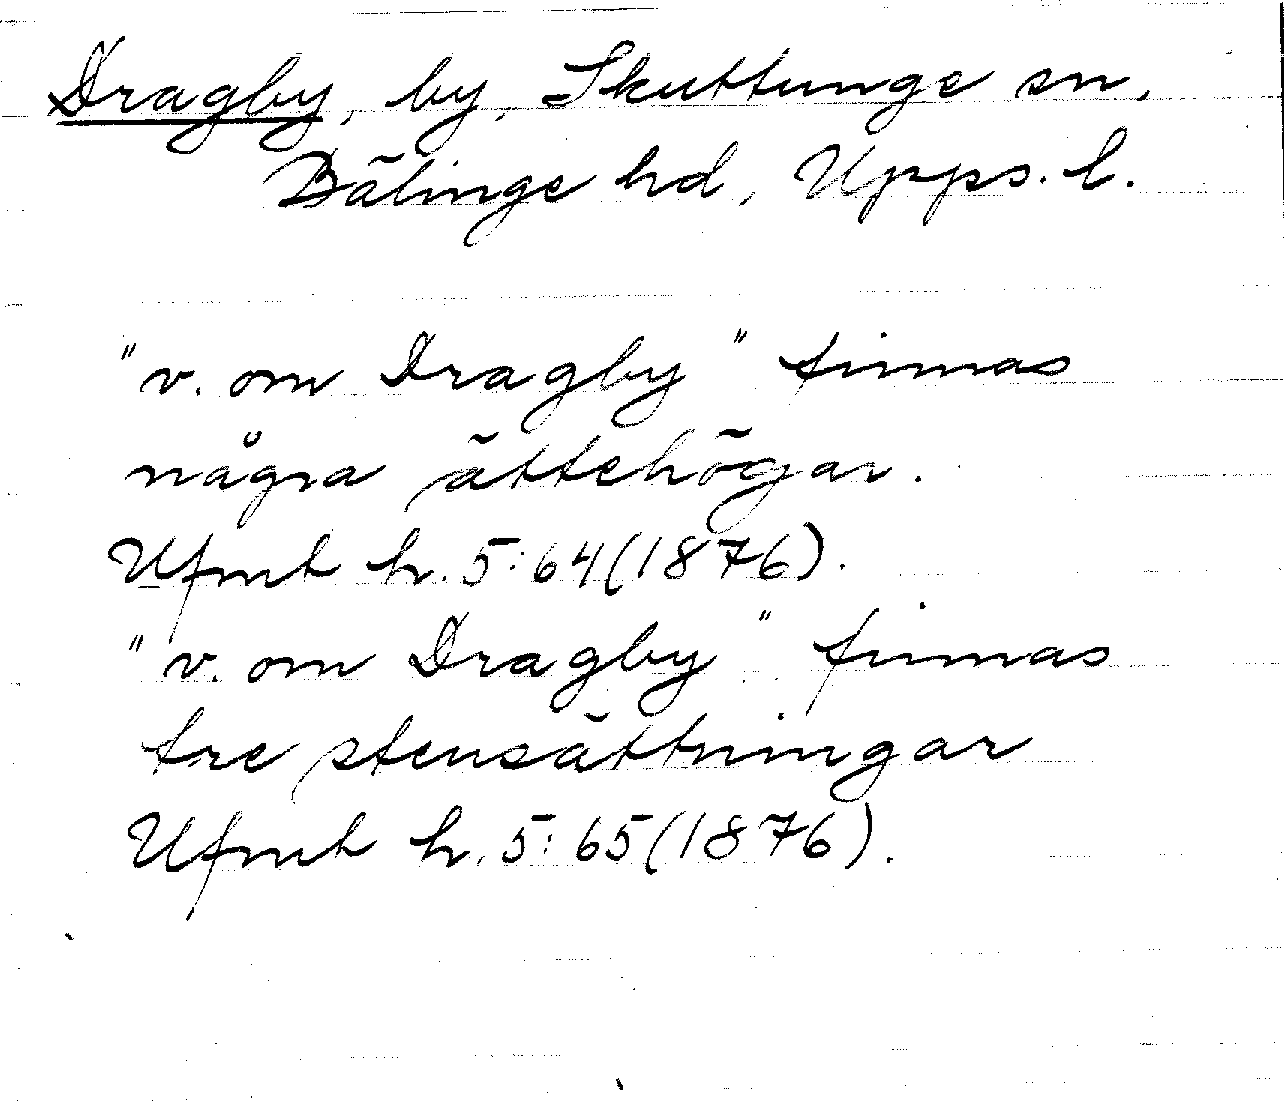 Dragby, by, Skuttunge sn,
Bälinge hd, Upps. l.
"v. om Dragby" finnas
några ättehögar.
Ufmt h. 5:64(1876).
"v. om Dragby" finnas
tre stensättningar
Ufmt h. 5:65(1876).